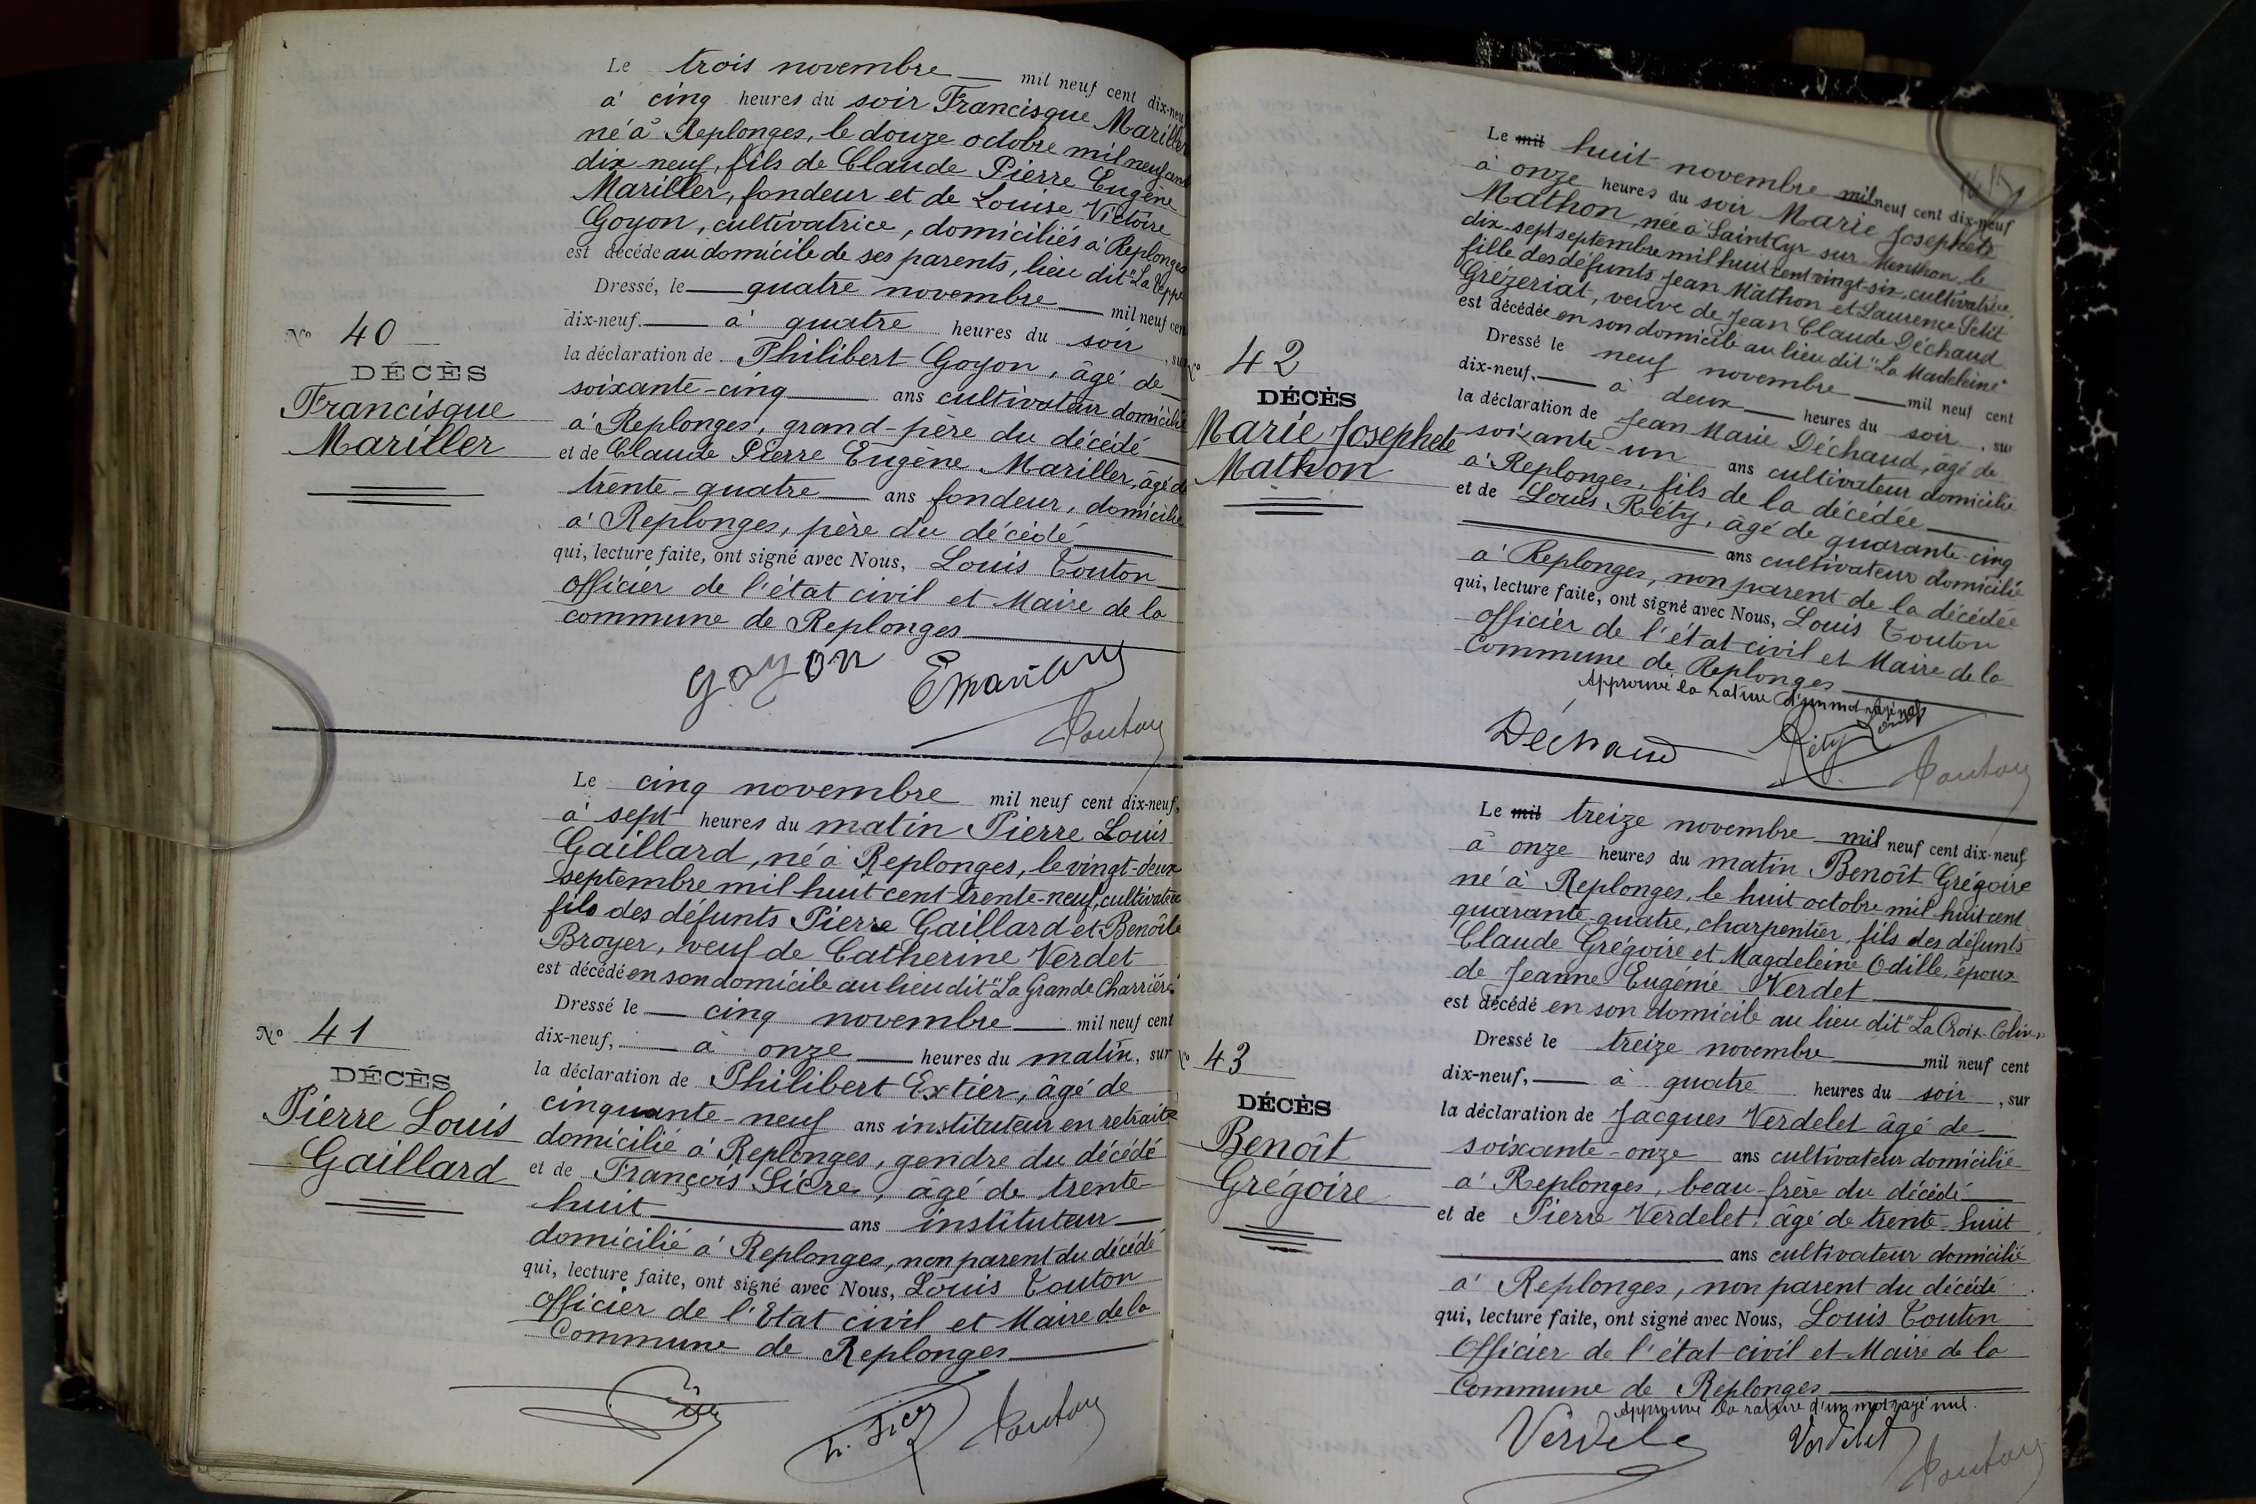 Le trois novembre mil neuf cent dix-neuf
à cinq heures du soir Francisque Mariller
né à Replonges, le douze octobre mil neuf cent
dix neuf, fils de Claude Pierre Eugène
Mariller, fondeur et de Louise Victoire
Goyon, cultivatrice, domiciliés à Replonges
est décédé au domicile de ses parents, lieu dit "La Teppe
Dressé, le quatre novembre mil neuf cent
dix-neuf. à quatre heures du soir, sur
la déclaration de Philibert Goyon, âgé de
soixante-cinq ans cultivateur domicilié
à Replonges, grand-père du décédé
et de Claude Pierre Eugène Mariller, âgé de
trente-quatre ans fondeur, domicilié
à Replonges, père du décédé
qui, lecture faite, ont signé avec Nous, Louis Touton
Officier de l'état civil et Maire de la
commune de Replonges
No 40
DÉCÈS
Francisque
Mariller
Goyon
Touton
Le cinq novembre mil neuf cent dix-neuf,
à sept heures du matin Pierre Louis
Gaillard, né à Replonges, le vingt-deux
septembre mil huit cent trente-neuf, cultivateur
fils des défunts Pierre Gaillard et Benoîte
Broyer, veuf de Catherine Verdet
est décédé en son domicile au lieu dit "La Grande Charrière"
Dressé le cinq novembre mil neuf cent
dix-neuf, à onze heures du matin, sur
la déclaration de Philibert Extier, âgé de
cinquante-neuf ans instituteur en retraite
domicilié à Replonges, gendre du décédé
et de François Sicre, âgé de trente
huit ans instituteur
domicilié à Replonges, non parent du décédé
qui, lecture faite, ont signé avec Nous, Louis Touton
Officier de l'Etat civil et Maire de la
Commune de Replonges
No 41
DÉCÈS
Pierre Louis
Gaillard
Touton
Le mil huit novembre mil neuf cent dix-neuf
à onze heures du soir Marie Josephete
Mathon, née à Saint Cyr sur Menthon, le
dix-sept septembre mil huit cent vingt-six, cultivatrice,
fille des défunts Jean Mathon et Laurence Petit
Grézeriat, veuve de Jean Claude Déchaud
est décédée en son domicile au lieu dit "La Madeleine"
Dressé le neuf novembre mil neuf cent
dix-neuf, à deux heures du soir, sur
la déclaration de Jean Marie Déchaud, âgé de
soixante-un ans cultivateur domicilié
à Replonges, fils de la décédée
et de Louis Réty, âgé de quarante-cinq
ans cultivateur domicilié
à Replonges, non parent de la décédée
qui, lecture faite, ont signé avec Nous, Louis Touton
Officier de l'état civil et Maire de la
Commune de Replonges
Approuvé la rature d'un mot rayé nul
No 42
DÉCÈS
Marie Josephete
Mathon
Déchaud
Réty
Touton
Le mil treize novembre mil neuf cent dix-neuf
à onze heures du matin Benoît Grégoire
né à Replonges, le huit octobre mil huit cent
quarante-quatre, charpentier, fils des défunts
Claude Grégoire et Magdeleine Odille, époux
de Jeanne Eugénie Verdet
est décédé en son domicile au lieu dit "La Croix Colin"
Dressé le treize novembre mil neuf cent
dix-neuf, à quatre heures du soir, sur
la déclaration de Jacques Verdelet âgé de
soixante-onze ans cultivateur domicilié
à Replonges, beau-frère du décédé
et de Pierre Verdelet, âgé de trente-huit
ans cultivateur domicilié
à Replonges, non parent du décédé
qui, lecture faite, ont signé avec Nous, Louis Touton
Officier de l'état civil et Maire de la
Commune de Replonges
Approuvé la rature d'un mot rayé nul.
No 43
DÉCÈS
Benoît
Grégoire
Verdelet
Touton